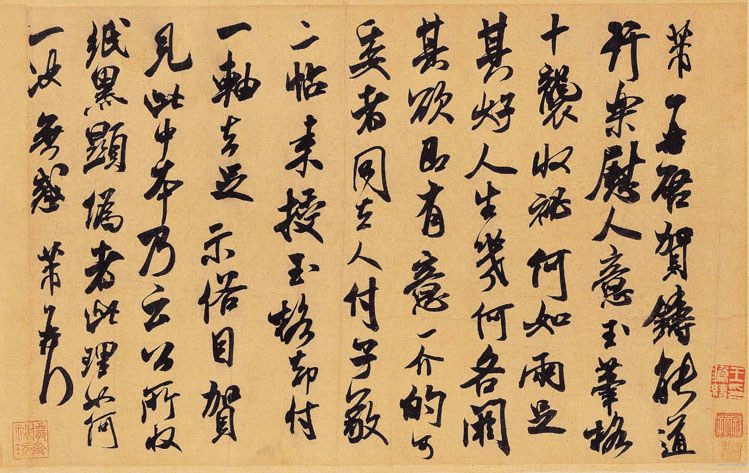 芾再啓賀鑄能道
行樂慰人意玉筆格
十襲收祕何如兩足
其好人生幾何各闕
其欲即有意一介的可
委者同去人付子敬
二帖來授玉格却付
一軸去足示俗目賀
見此中本乃云公所收
紙黑顯偽者此理如何
一決無惑 芾再行